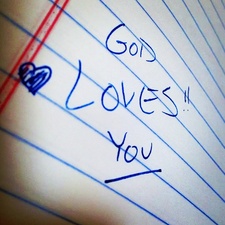 GOD
LOVES!!
YOU